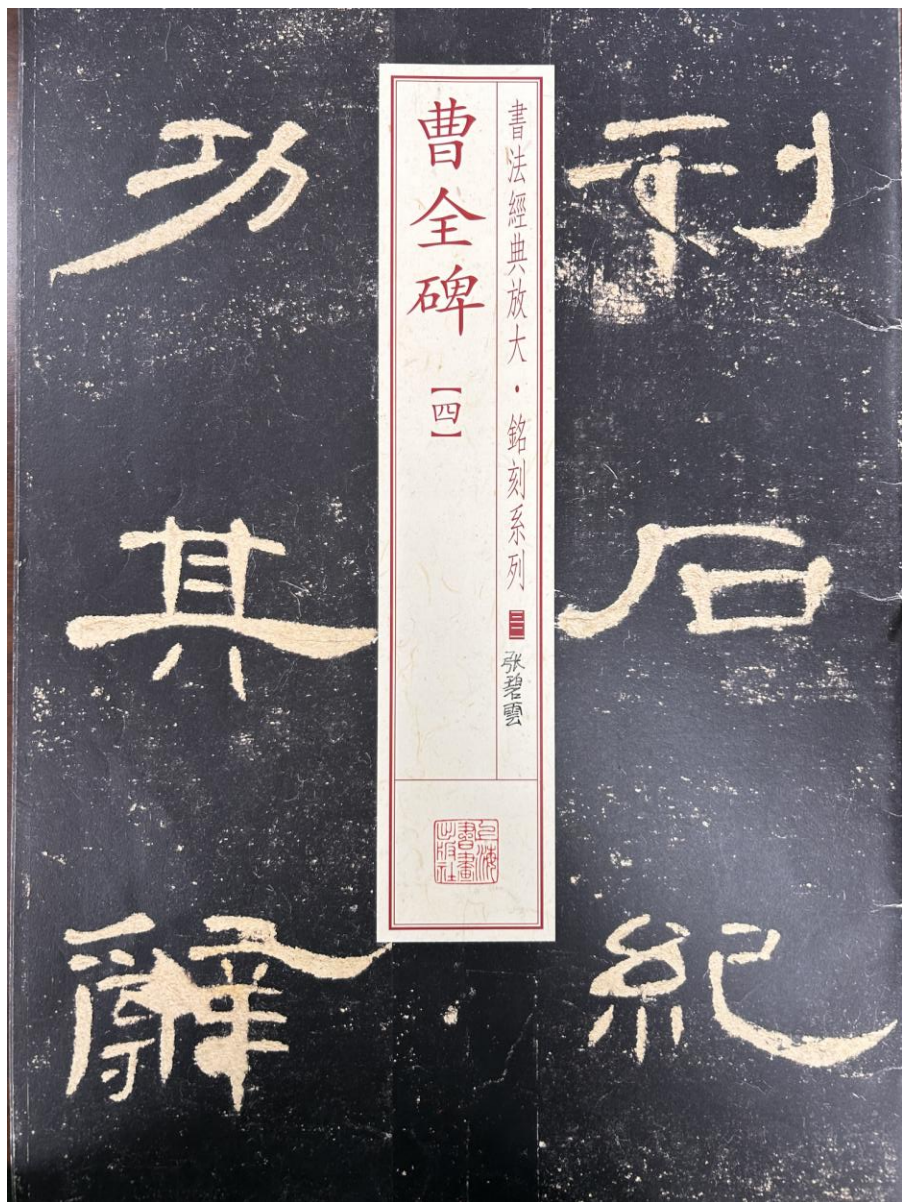 刊石紀
書法經典放大·銘刻系列
张碧雲
曹全碑
【四】
上海
書畫
出版社
功其辭